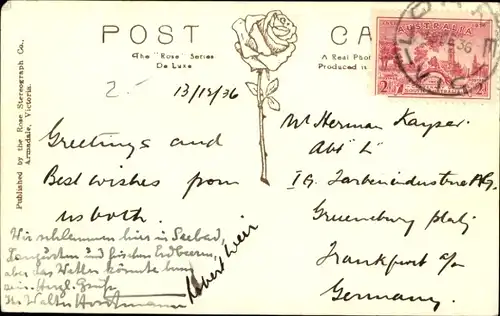 POST CA
The "Rose" Series
De Luxe
A Real Pho
Produced in
Published by the Rose Stereograph Co.,
Armadale, Victoria.
AUSTRALIA
2.-
13/12/36
Greetings and
Best wishes from
us both.
Wir schlemmen hier in Seebad,
Langusten und frischen Erdbeeren,
aber das Wetter könnte
sein. Herzl. Grüße
Ihr Walter
Robert Weir
Mr Herman Kayser
Abt "L"
I.G. Farbenindustrie A.G.
Grueneburg platz
Frankfurt a/m
Germany.